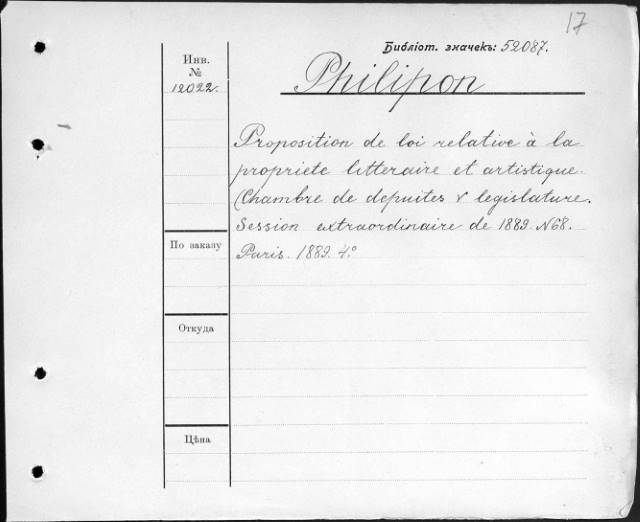 17
Библіот. значекъ: 52087.
Инв.
№
12022.
Philipon
Proposition de loi relative à la
propriete litteraire et artistique.
(Chambre de depuites V legislature.
Session extraordinaire de 1889 N68.
Paris. 1889. 4.°
По заказу
Откуда
Цѣна